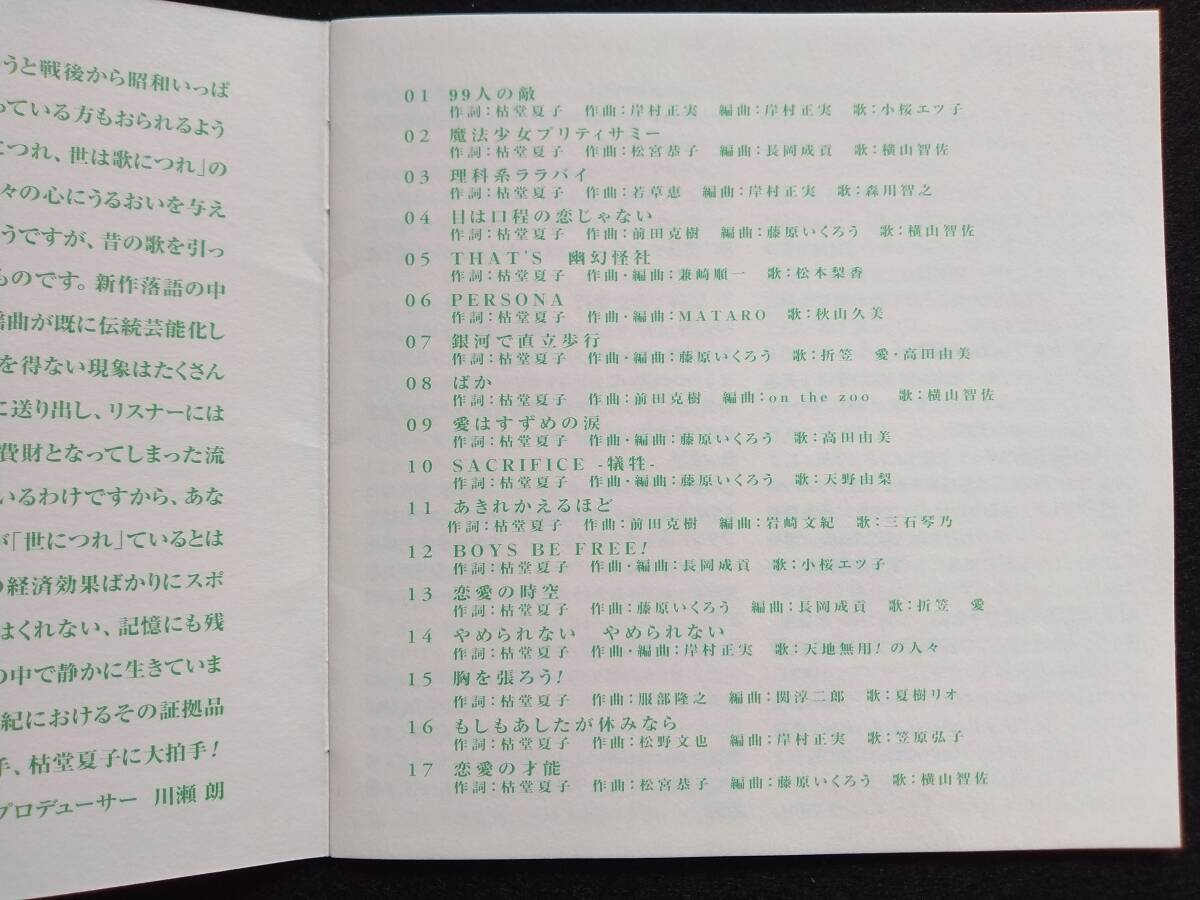 うと戦後から昭和いっぱ
っている方もおられるよう
につれ、世は歌につれ」の
々の心にうるおいを与え
うですが、昔の歌を引っ
ものです。新作落語の中
謡曲が既に伝統芸能化し
を得ない現象はたくさん
に送り出し、リスナーには
費財となってしまった流
いるわけですから、あな
が「世につれ」ているとは
の経済効果ばかりにスポ
はくれない、記憶にも残
の中で静かに生きていま
紀におけるその証拠品
手、枯堂夏子に大拍手!
プロデューサー 川瀬 朗
01 99人の敵
作詞:枯堂夏子 作曲:岸村正実 編曲:岸村正実 歌:小桜エツ子
02 魔法少女プリティサミー
作詞:枯堂夏子 作曲:松宮恭子 編曲:長岡成貢 歌:横山智佐
03 理科系ララバイ
作詞:枯堂夏子 作曲:若草恵 編曲:岸村正実 歌:森川智之
04 目は口程の恋じゃない
作詞:枯堂夏子 作曲:前田克樹 編曲:藤原いくろう 歌:横山智佐
05 THAT'S 幽幻怪社
作詞:枯堂夏子 作曲・編曲:兼崎順一 歌:松本梨香
06 PERSONA
作詞:枯堂夏子 作曲・編曲:MATARO 歌:秋山久美
07 銀河で直立歩行
作詞:枯堂夏子 作曲・編曲:藤原いくろう 歌:折笠 愛・高田由美
08 ばか
作詞:枯堂夏子 作曲:前田克樹 編曲:on the zoo 歌:横山智佐
09 愛はすずめの涙
作詞:枯堂夏子 作曲・編曲:藤原いくろう 歌:高田由美
10 SACRIFICE -犠牲-
作詞:枯堂夏子 作曲・編曲:藤原いくろう 歌:天野由梨
11 あきれかえるほど
作詞:枯堂夏子 作曲:前田克樹 編曲:岩崎文紀 歌:三石琴乃
12 BOYS BE FREE!
作詞:枯堂夏子 作曲・編曲:長岡成貢 歌:小桜エツ子
13 恋愛の時空
作詞:枯堂夏子 作曲:藤原いくろう 編曲:長岡成貢 歌:折笠 愛
14 やめられない やめられない
作詞:枯堂夏子 作曲・編曲:岸村正実 歌:天地無用!の人々
15 胸を張ろう!
作詞:枯堂夏子 作曲:服部隆之 編曲:関淳二郎 歌:夏樹リオ
16 もしもあしたが休みなら
作詞:枯堂夏子 作曲:松野文也 編曲:岸村正実 歌:笠原弘子
17 恋愛の才能
作詞:枯堂夏子 作曲:松宮恭子 編曲:藤原いくろう 歌:横山智佐